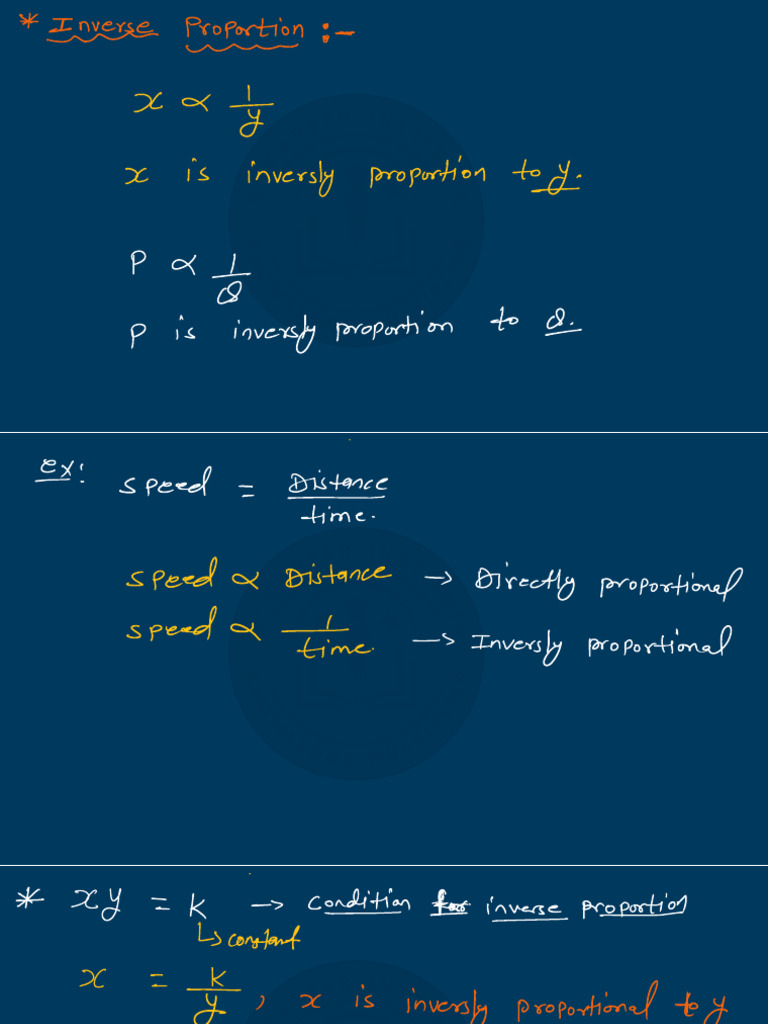 * Inverse Proportion :-
x ∝ 1/y
x is inversly proportion to y.
P ∝ 1/Q
P is inversly proportion to Q.
ex: speed = Distance/time.
speed ∝ Distance → Directly proportional
speed ∝ 1/time. → Inversly proportional
* xy = k → condition for inverse proportion
↳ constant
x = k/y, x is inversly proportional to y